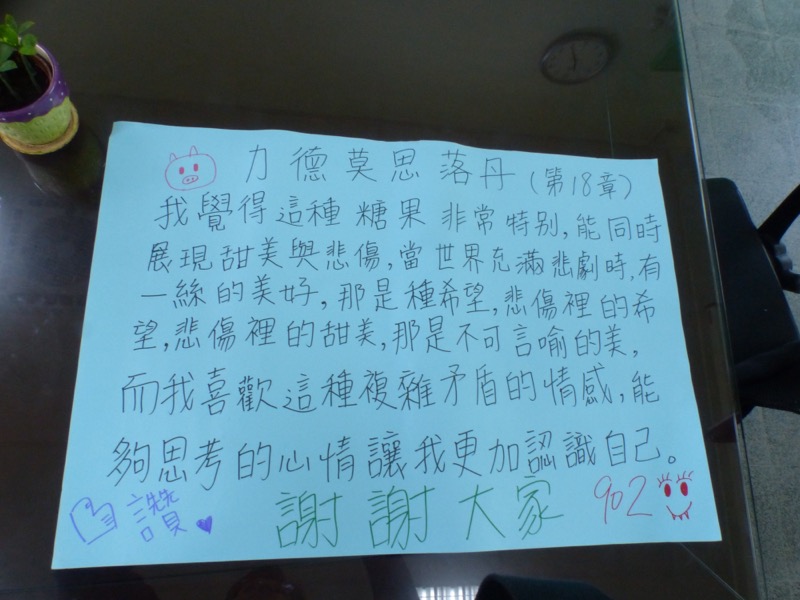 力德莫思落丹(第18章)
我覺得這種糖果非常特別,能同時
展現甜美與悲傷,當世界充滿悲劇時,有
一絲的美好,那是種希望,悲傷裡的希
望,悲傷裡的甜美,那是不可言喻的美,
而我喜歡這種複雜矛盾的情感,能
夠思考的心情讓我更加認識自己。
讚 謝謝大家 902